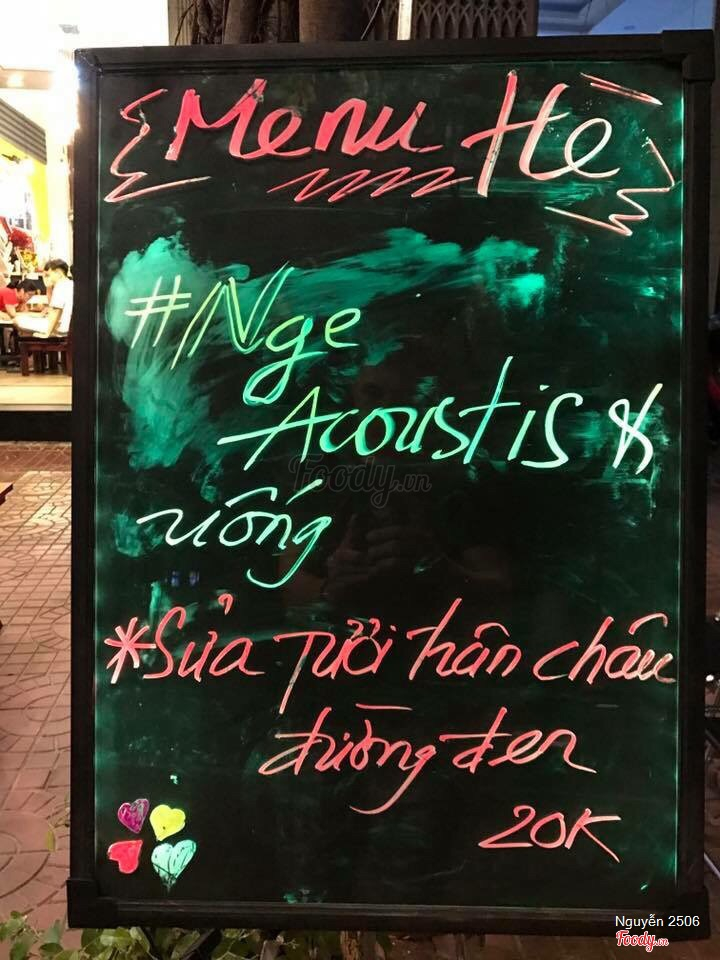 Menu Hè
#Nge
Acoustis &
uống
*Sữa Tưởi trân châu
đường đen
20K
Foody.vn
Nguyễn 2506
Foody.vn